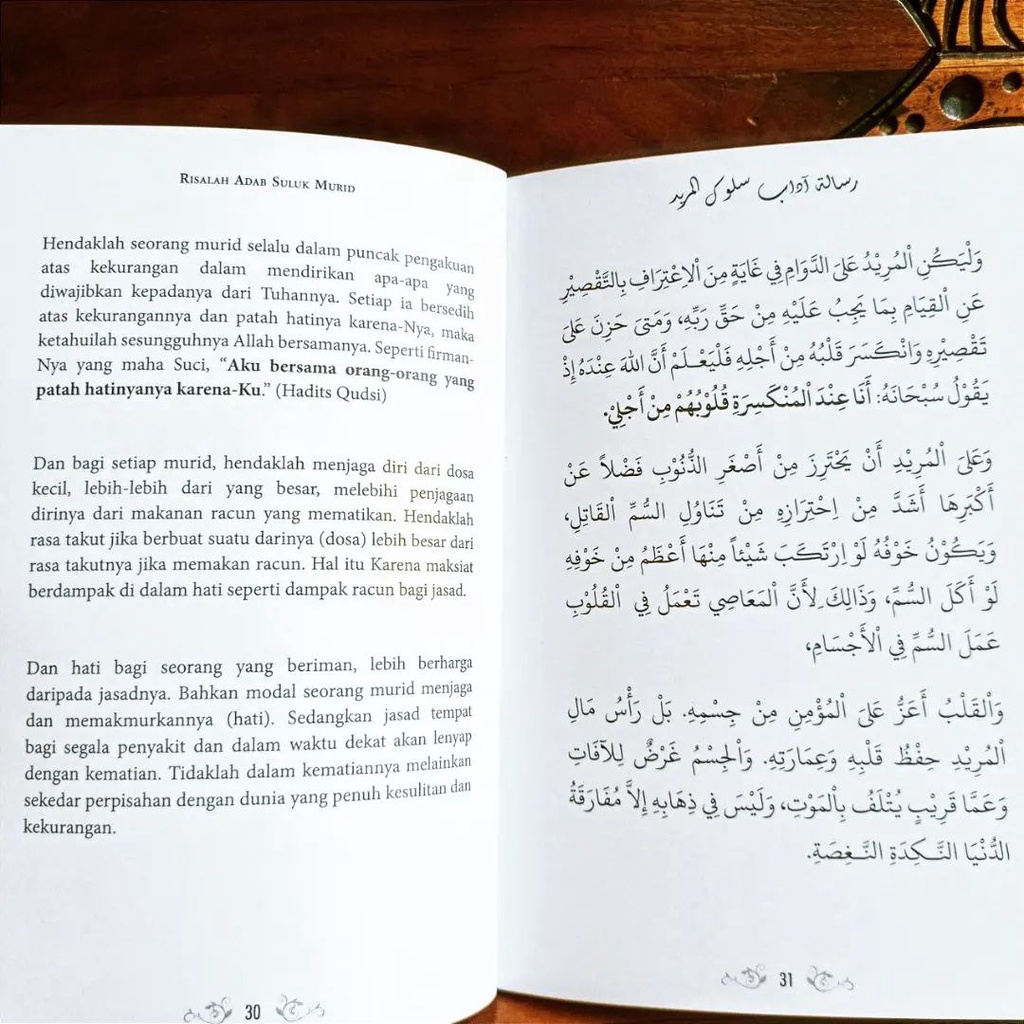 Risalah Adab Suluk Murid
Hendaklah seorang murid selalu dalam puncak pengakuan
atas kekurangan dalam mendirikan apa-apa yang
diwajibkan kepadanya dari Tuhannya. Setiap ia bersedih
atas kekurangannya dan patah hatinya karena-Nya, maka
ketahuilah sesungguhnya Allah bersamanya. Seperti firman-
Nya yang maha Suci, “Aku bersama orang-orang yang
patah hatinyanya karena-Ku.” (Hadits Qudsi)
Dan bagi setiap murid, hendaklah menjaga diri dari dosa
kecil, lebih-lebih dari yang besar, melebihi penjagaan
dirinya dari makanan racun yang mematikan. Hendaklah
rasa takut jika berbuat suatu darinya (dosa) lebih besar dari
rasa takutnya jika memakan racun. Hal itu Karena maksiat
berdampak di dalam hati seperti dampak racun bagi jasad.
Dan hati bagi seorang yang beriman, lebih berharga
daripada jasadnya. Bahkan modal seorang murid menjaga
dan memakmurkannya (hati). Sedangkan jasad tempat
bagi segala penyakit dan dalam waktu dekat akan lenyap
dengan kematian. Tidaklah dalam kematiannya melainkan
sekedar perpisahan dengan dunia yang penuh kesulitan dan
kekurangan.
30
رسالة آداب سلوك المريد
وَلْيَكُنِ الْمُرِيْدُ عَلَى الدَّوَامِ فِي غَايَةٍ مِنَ الْاِعْتِرَافِ بِالتَّقْصِيْرِ
عَنِ الْقِيَامِ بِمَا يَجِبُ عَلَيْهِ مِنْ حَقِّ رَبِّهِ، وَمَتىَ حَزِنَ عَلىَ
تَقْصِيْرِهِ وَانْكَسَرَ قَلْبُهُ مِنْ أَجْلِهِ فَلْيَعْلَمْ أَنَّ اللهَ عِنْدَهُ إِذْ
يَقُوْلُ سُبْحَانَهُ: أَنَا عِنْدَ الْمُنْكَسِرَةِ قُلُوْبُهُمْ مِنْ أَجْلِيْ.
وَعَلىَ الْمُرِيْدِ أَنْ يَحْتَرِزَ مِنْ أَصْغَرِ الذُّنُوْبِ فَضْلاً عَنْ
أَكْبَرِهَا أَشَدَّ مِنْ اِحْتِرَازِهِ مِنْ تَنَاوُلِ السُّمِّ الْقَاتِلِ،
وَيَكُوْنُ خَوْفُهُ لَوْ اِرْتَكَبَ شَيْئاً مِنْهَا أَعْظَمُ مِنْ خَوْفِهِ
لَوْ أَكَلَ السُّمِّ، وَذَالِكَ لِأَنَّ الْمَعَاصِي تَعْمَلُ فِي الْقُلُوْبِ
عَمَلَ السُّمِّ فِي الْأَجْسَامِ،
وَالْقَلْبُ أَعَزُّ عَلىَ الْمُؤْمِنِ مِنْ جِسْمِهِ. بَلْ رَأْسُ مَالِ
الْمُرِيْدِ حِفْظُ قَلْبِهِ وَعِمَارَتِهِ. وَالْجِسْمُ غَرْضٌ لِلآفَاتِ
وَعَمَّا قَرِيْبٍ يُتْلَفُ بِالْمَوْتِ، وَلَيْسَ فِي ذِهَابِهِ إِلاَّ مُفَارَقَةُ
الدُّنْيَا النَّكِدَةِ النَّغِصَةِ.
31